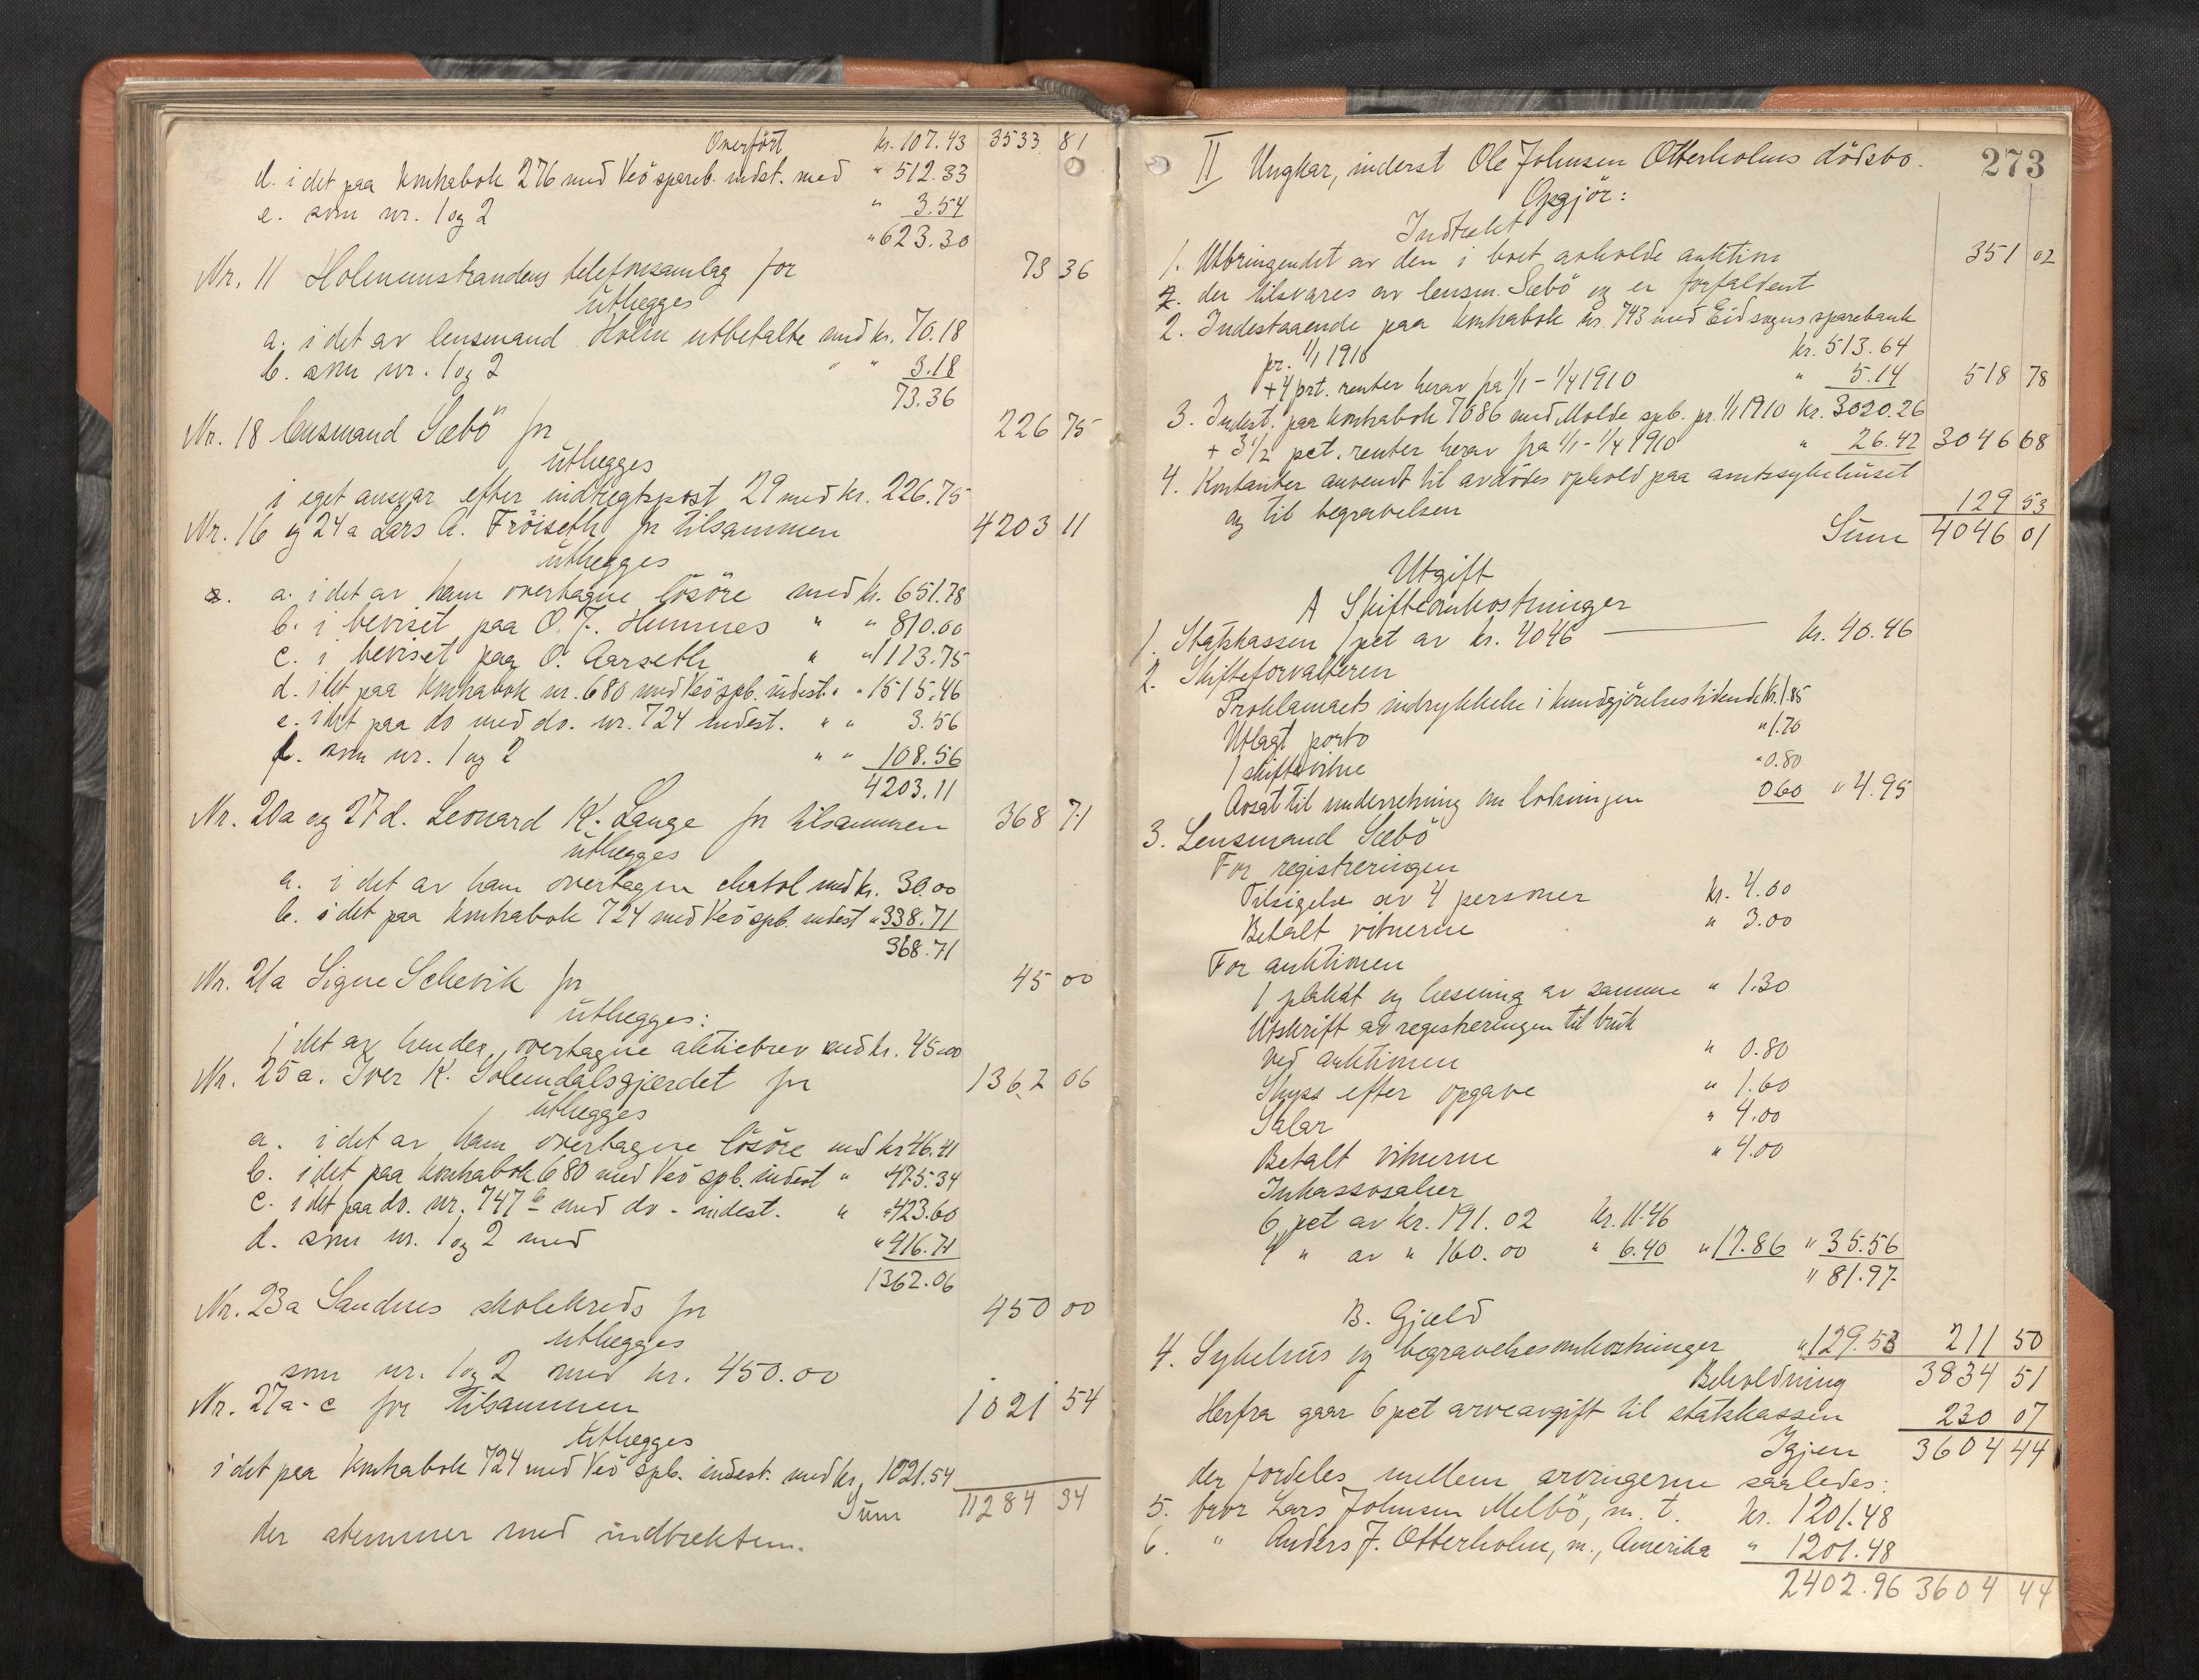 Overført kr. 107.43 3533 81
d. i det paa kontrabok 276 med Veö spareb. indst. med " 512.33
e. som nr. 1 og 2 " 3.54
" 623.30
Nr. 11 Holmemstrandens telefonsamlag for 73 36
utlægges
a. i det av lensmand Holm utbetalte med kr. 70.18
b. som nr. 1 og 2 " " 3.18
73.36
Nr. 18 lensmand Sæbö for 226 75
utlægges
i eget ansvar efter indtægtspost 29 med kr. 226.75
Nr. 16 og 24a Lars A. Fröiseth for tilsammen 4203 11
utlægges
a. i det av ham overtagne lösöre med kr. 651.78
b. i beviset paa O. J. Hunnes " " 810.00
c. i beviset paa O. Aarseth " " 1113.75
d. i det paa kontrabok nr. 680 med Veö spb. indest. " " 1515.46
e. i det paa do med do. nr. 724 indest. " " 3.56
f. som nr. 1 og 2 " " 108.56
4203.11
Nr. 20a og 27d. Leonard K. Lange for tilsammen 368 71
utlægges
a. i det av ham overtagne chatol med kr. 30.00
b. i det paa kontrabok 724 med Veö spb. indest " 338.71
368.71
Nr. 21a Signe Schevik for 45 00
utlægges:
i det av hender overtagne aktiebrev med kr. 45.00
Nr. 25a. Iver K. Solemdalsgjærdet for 1362 06
utlægges
a. i det av ham overtagne lösöre med kr 46.41
b. i det paa kontrabok 680 med Veö spb. indest " 475.34
c. i det paa do. nr. 747 b med do - indest. " " 423.60
d. som nr. 1 og 2 med " 416.71
1362.06
Nr. 23a Sandnes skolekreds for 450 00
utlægges
som nr. 1 og 2 med kr. 450.00
Nr. 27a-c for tilsammen 1021 54
utlægges
i det paa kontrabok 724 med Veö spb. indest. med kr. 1021.54
Sum 11284 34
der stemmer med indtækten.
273
II Ungkar, inderst Ole Johnsen Otterholms dödsbo.
Opgjör:
Indtækt
1. Utbringendet av den i boet avholdte auktion 351 02
der tilsvares av lensm. Sæbö og er forfaldent
2. Indestaaende paa kontrabok nr. 743 med Eidsvaags sparebank
pr. 1/1 1910 kr. 513.64
+ 4 prt. renter herav fra 1/1 - 1/4 1910 " 5.14 518 78
3. Indest. paa kontrabok 7086 med Molde spb. pr. 1/1 1910 kr. 3020.26
+ 3 1/2 pct. renter herav fra 1/1 - 1/4 1910 " 26.42 3046 68
4. Kontanter anvendt til avdödes ophold paa amtssykehuset
og til begravelsen 129 53
Sum 4046 01
Utgift
A Skifteomkostninger
1. Statskassen 1 pct av kr. 4046 kr. 40.46
2. Skifteforvalteren
Proklamaets indrykkelse i kundgjörelsestidende kr. 1.85
Utlagt porto " 1.70
1 skiftevitne " 0.80
Avsat til underretning om lodningen 0.60 " 4.95
3. Lensmand Sæbö
For registreringen
Tilsigelse av 4 personer kr. 4.00
Betalt vitnerne " 3.00
For auktionen
1 plakat og læsning av samme " 1.30
Utskrift av registreringen til bruk
ved auktionen " 0.80
Skyss efter opgave " 1.60
Salær " 4.00
Betalt vitnerne " 4.00
Inkassosalær
6 pct av kr. 191.02 kr. 11.46
4 " av " 160.00 " 6.40 " 17.86 " 35.56
" 81.97
B. Gjæld
4. Sykehus og begravelsesomkostninger " 129.53 211 50
Beholdning 3834 51
Herfra gaar 6 pct arveavgift til statskassen 230 07
Igjen 3604 44
der fordeles mellem arvingerne saaledes:
5. bror Lars Johnsen Melbö, m. t. kr. 1201.48
6. " Anders J. Otterholm, m., Amerika " 1201.48
2402.96 3604 44